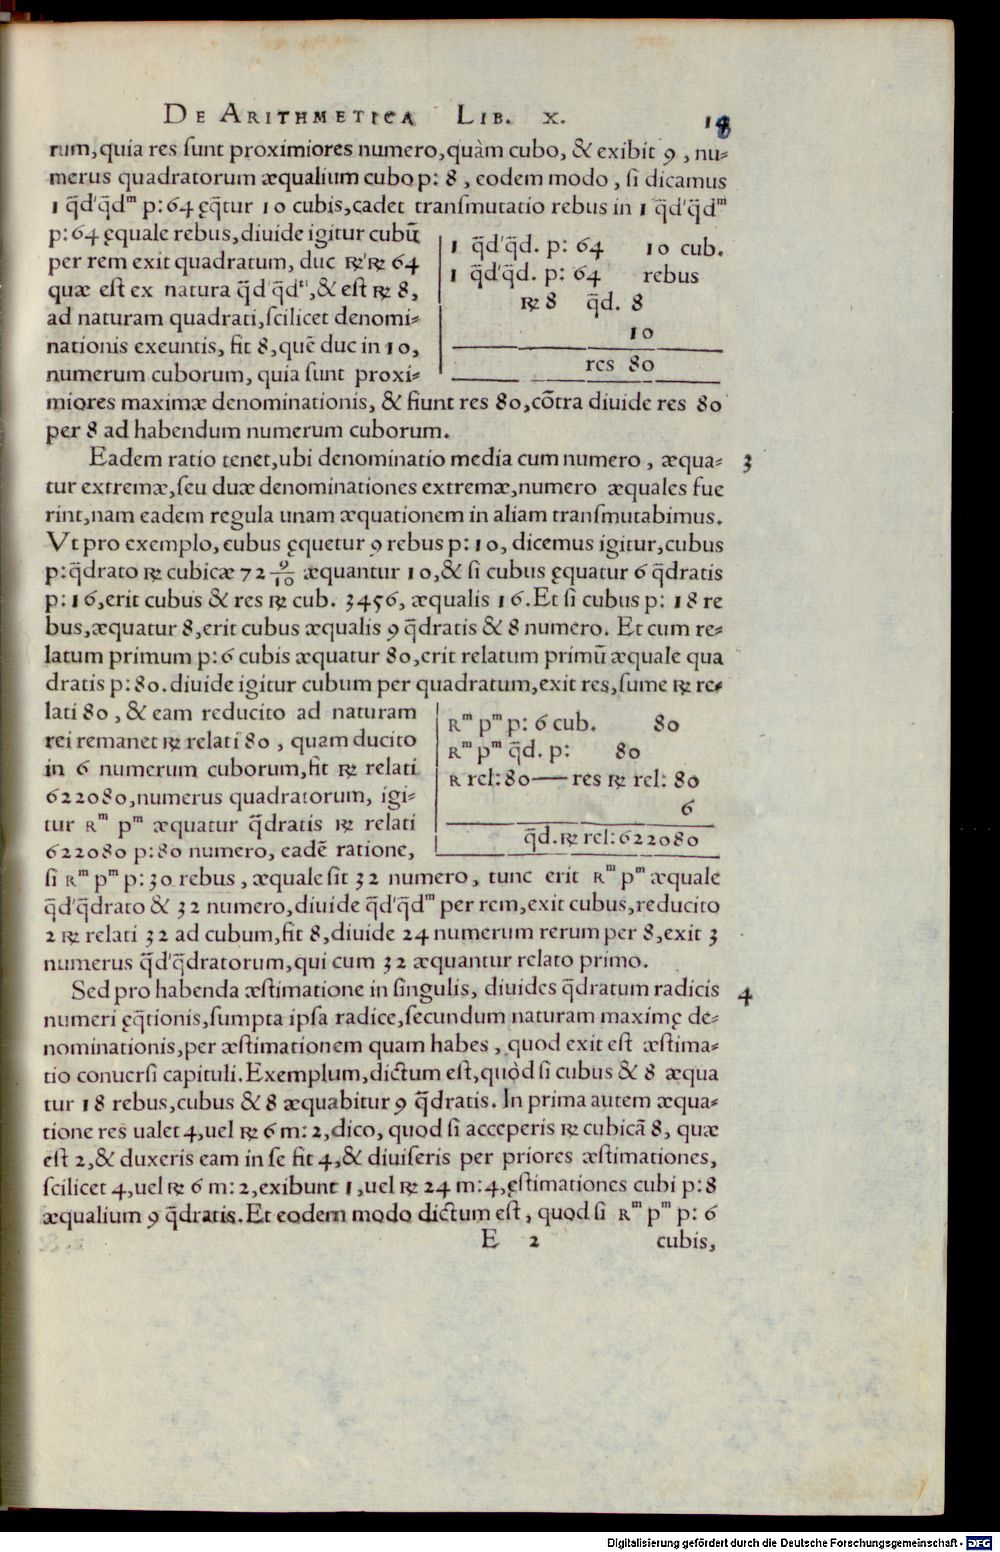 DE ARITHMETICA LIB. X. 18
rum, quia res ſunt proximiores numero, quàm cubo, & exibit 9, nu⸗
merus quadratorum æqualium cubo p: 8, eodem modo, ſi dicamus
1 q̃d'q̃dᵐ p: 64 ęq̃tur 10 cubis, cadet tranſmutatio rebus in 1 q̃d'q̃dᵐ
p: 64 ęquale rebus, diuide igitur cubũ
per rem exit quadratum, duc ℞'℞ 64
quæ eſt ex natura q̃d'q̃dᵗⁱ, & eſt ℞ 8,
ad naturam quadrati, ſcilicet denomi⸗
nationis exeuntis, fit 8, quẽ duc in 10,
numerum cuborum, quia ſunt proxi⸗
1 q̃d'q̃d. p: 64 10 cub.
1 q̃d'q̃d. p: 64 rebus
℞ 8 q̃d. 8
10
res 80
miores maximæ denominationis, & fiunt res 80, cõtra diuide res 80
per 8 ad habendum numerum cuborum.
Eadem ratio tenet, ubi denominatio media cum numero, æqua⸗ 3
tur extremæ, ſeu duæ denominationes extremæ, numero æquales fue
rint, nam eadem regula unam æquationem in aliam tranſmutabimus.
Vt pro exemplo, cubus ęquetur 9 rebus p: 10, dicemus igitur, cubus
p: q̃drato ℞ cubicæ 72 9/10 æquantur 10, & ſi cubus ęquatur 6 q̃dratis
p: 16, erit cubus & res ℞ cub. 3456, æqualis 16. Et ſi cubus p: 18 re
bus, æquatur 8, erit cubus æqualis 9 q̃dratis & 8 numero. Et cum re⸗
latum primum p: 6 cubis æquatur 80, erit relatum primũ æquale qua
dratis p: 80. diuide igitur cubum per quadratum, exit res, ſume ℞ re⸗
lati 80, & eam reducito ad naturam
rei remanet ℞ relati 80, quam ducito
in 6 numerum cuborum, fit ℞ relati
622080, numerus quadratorum, igi⸗
tur Rᵐ pᵐ æquatur q̃dratis ℞ relati
622080 p: 80 numero, eadẽ ratione,
Rᵐ pᵐ p: 6 cub. 80
Rᵐ pᵐ q̃d. p: 80
R rel: 80 — res ℞ rel: 80
6
q̃d. ℞ rel: 622080
ſi Rᵐ pᵐ p: 30 rebus, æquale ſit 32 numero, tunc erit Rᵐ pᵐ æquale
q̃d'q̃drato & 32 numero, diuide q̃d'q̃dᵐ per rem, exit cubus, reducito
2 ℞ relati 32 ad cubum, fit 8, diuide 24 numerum rerum per 8, exit 3
numerus q̃d'q̃dratorum, qui cum 32 æquantur relato primo.
Sed pro habenda æſtimatione in ſingulis, diuides q̃dratum radicis 4
numeri ęq̃tionis, ſumpta ipſa radice, ſecundum naturam maximę de⸗
nominationis, per æſtimationem quam habes, quod exit eſt æſtima⸗
tio conuerſi capituli. Exemplum, dictum eſt, quòd ſi cubus & 8 æqua
tur 18 rebus, cubus & 8 æquabitur 9 q̃dratis. In prima autem æqua⸗
tione res ualet 4, uel ℞ 6 m: 2, dico, quod ſi acceperis ℞ cubicã 8, quæ
eſt 2, & duxeris eam in ſe fit 4, & diuiſeris per priores æſtimationes,
ſcilicet 4, uel ℞ 6 m: 2, exibunt 1, uel ℞ 24 m: 4, ęſtimationes cubi p: 8
æqualium 9 q̃dratis. Et eodem modo dictum eſt, quod ſi Rᵐ pᵐ p: 6
E 2 cubis,
Digitalisierung gefördert durch die Deutsche Forschungsgemeinschaft - DFG